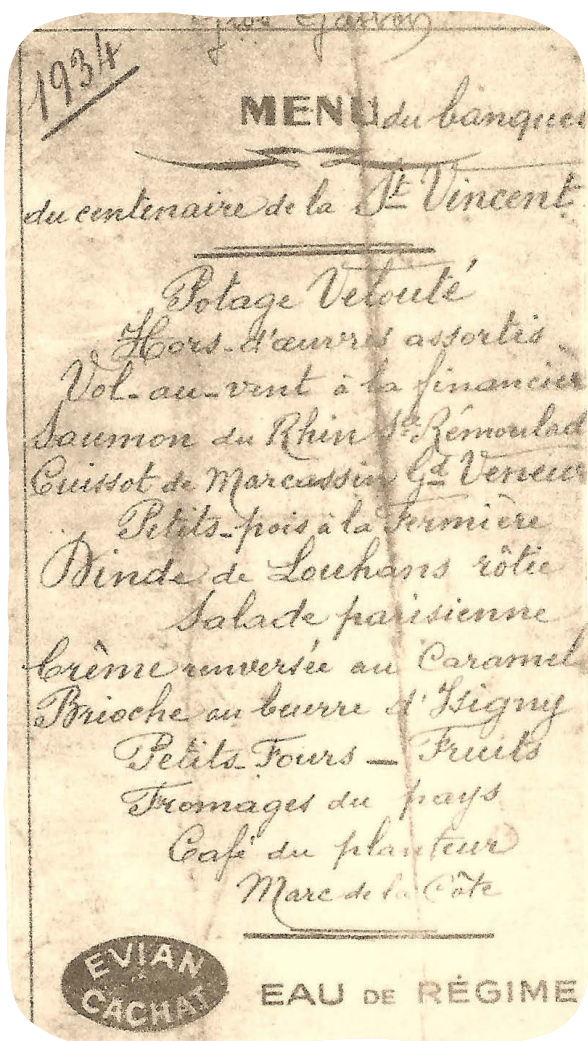 1934
MENU du banquet
du centenaire de la St Vincent
Potage Velouté
Hors-d'œuvres assortis
Vol-au-vent à la financièr
Saumon du Rhin Sce Rémoulad
Cuissot de Marcassin Gd Veneur
Petits-pois à la Fermière
Dinde de Louhans rôtie
Salade parisienne
Crème renversée au Caramel
Brioche au beurre d'Isigny
Petits-Fours — Fruits
Fromages du pays
Café du planteur
Marc de la Côte
EVIAN
CACHAT
EAU DE RÉGIME